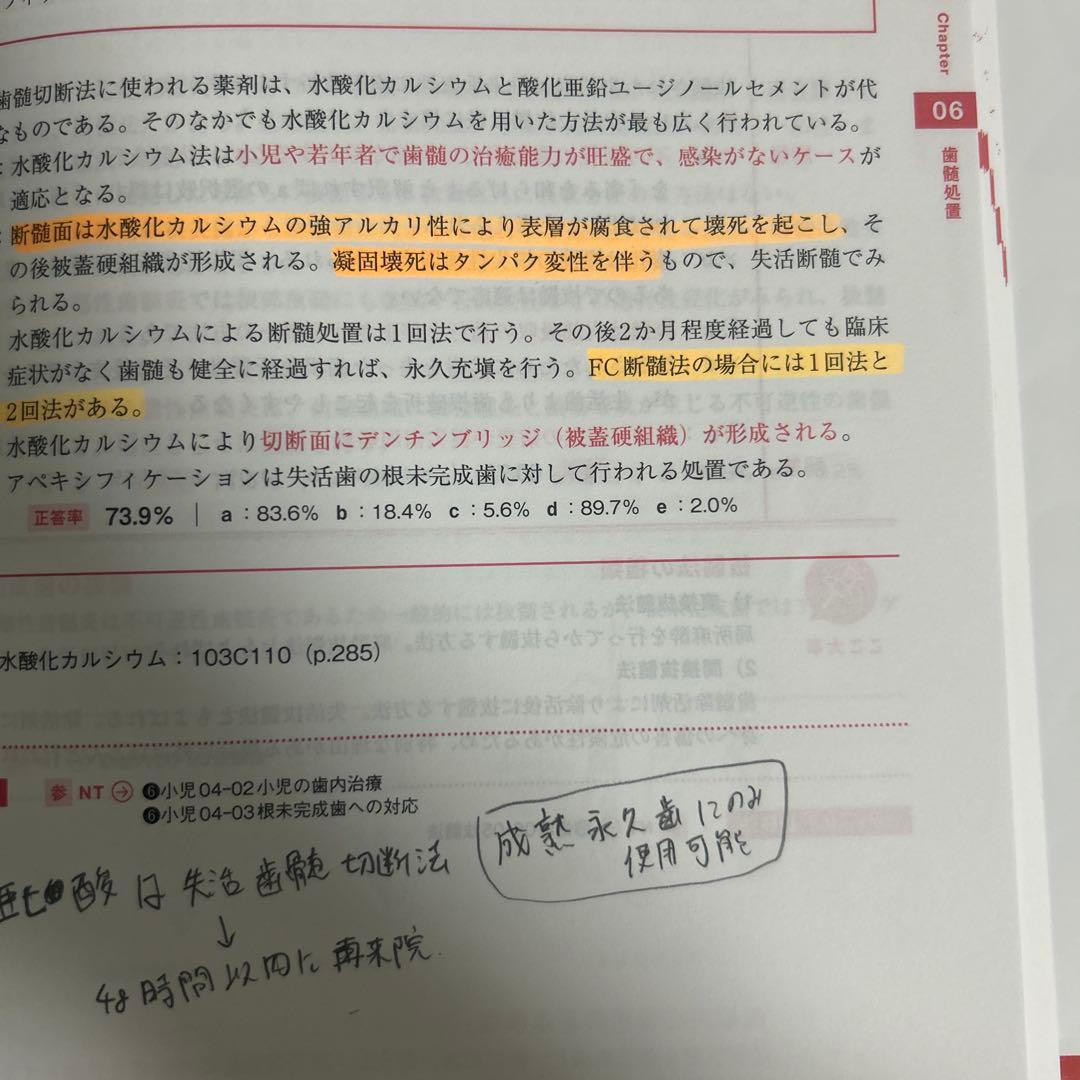 Chapter
06
歯髄処置
歯髄切断法に使われる薬剤は、水酸化カルシウムと酸化亜鉛ユージノールセメントが代
なものである。そのなかでも水酸化カルシウムを用いた方法が最も広く行われている。
：水酸化カルシウム法は小児や若年者で歯髄の治癒能力が旺盛で、感染がないケースが
適応となる。
：断髄面は水酸化カルシウムの強アルカリ性により表層が腐食されて壊死を起こし、そ
の後被蓋硬組織が形成される。凝固壊死はタンパク変性を伴うもので、失活断髄でみ
られる。
水酸化カルシウムによる断髄処置は1回法で行う。その後2か月程度経過しても臨床
症状がなく歯髄も健全に経過すれば、永久充塡を行う。FC断髄法の場合には1回法と
2回法がある。
水酸化カルシウムにより切断面にデンチンブリッジ（被蓋硬組織）が形成される。
アペキシフィケーションは失活歯の根未完成歯に対して行われる処置である。
正答率 73.9% | a：83.6% b：18.4% c：5.6% d：89.7% e：2.0%
水酸化カルシウム：103C110（p.285）
参 NT→ ❻小児04-02小児の歯内治療
❻小児04-03根未完成歯への対応
成熟永久歯にのみ
使用可能
酸は失活歯髄切断法
↓
48時間以内に再来院.